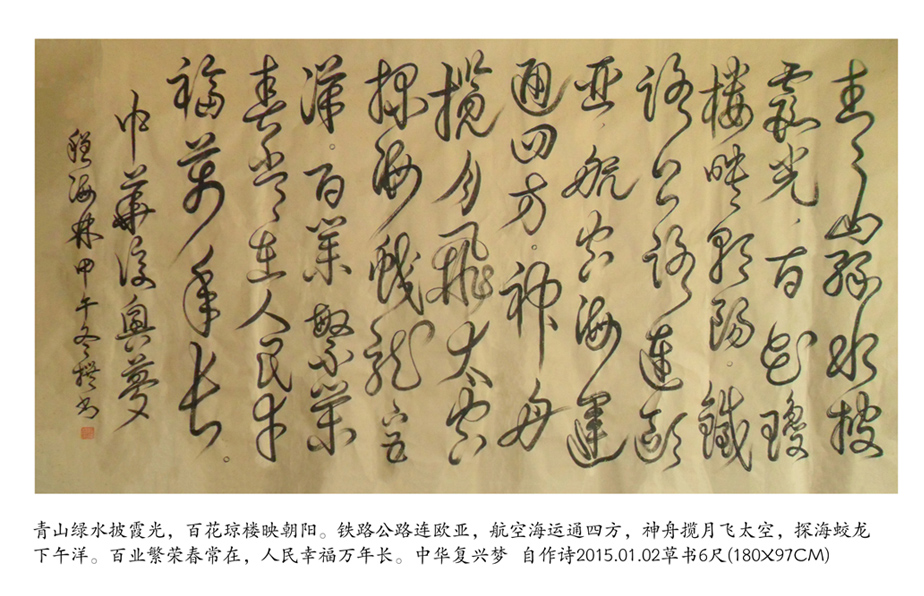 青山緑水披
霞光，百花瓊
樓映朝陽。鐵
路公路連歐
亞，航空海運
通四方。神舟
攬月飛太空
探海蛟龍下五
洋。百業繁榮
春常在人民幸
福萬年長。
中華復興夢
海林甲午冬撰书
青山绿水披霞光，百花琼楼映朝阳。铁路公路连欧亚，航空海运通四方，神舟揽月飞太空，探海蛟龙
下午洋。百业繁荣春常在，人民幸福万年长。中华复兴梦 自作诗2015.01.02草书6尺(180X97CM)